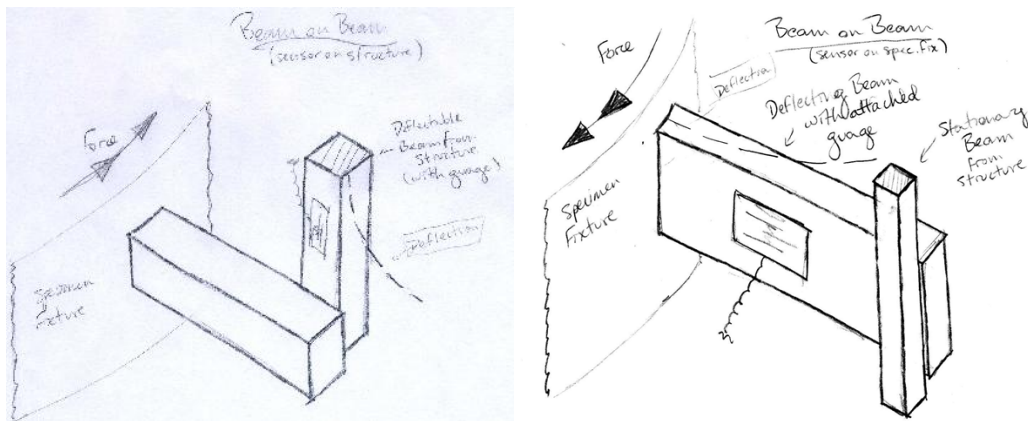 Beam on Beam
(sensor on structure)
Force
Deflectable
Beam from
Structure
(with guage)
Deflection
Specimen
Fixture
Beam on Beam
(sensor on spec. fix)
Force
Deflection
Deflecting Beam
with attached
guage
Stationary
Beam
from
structure
Specimen
Fixture